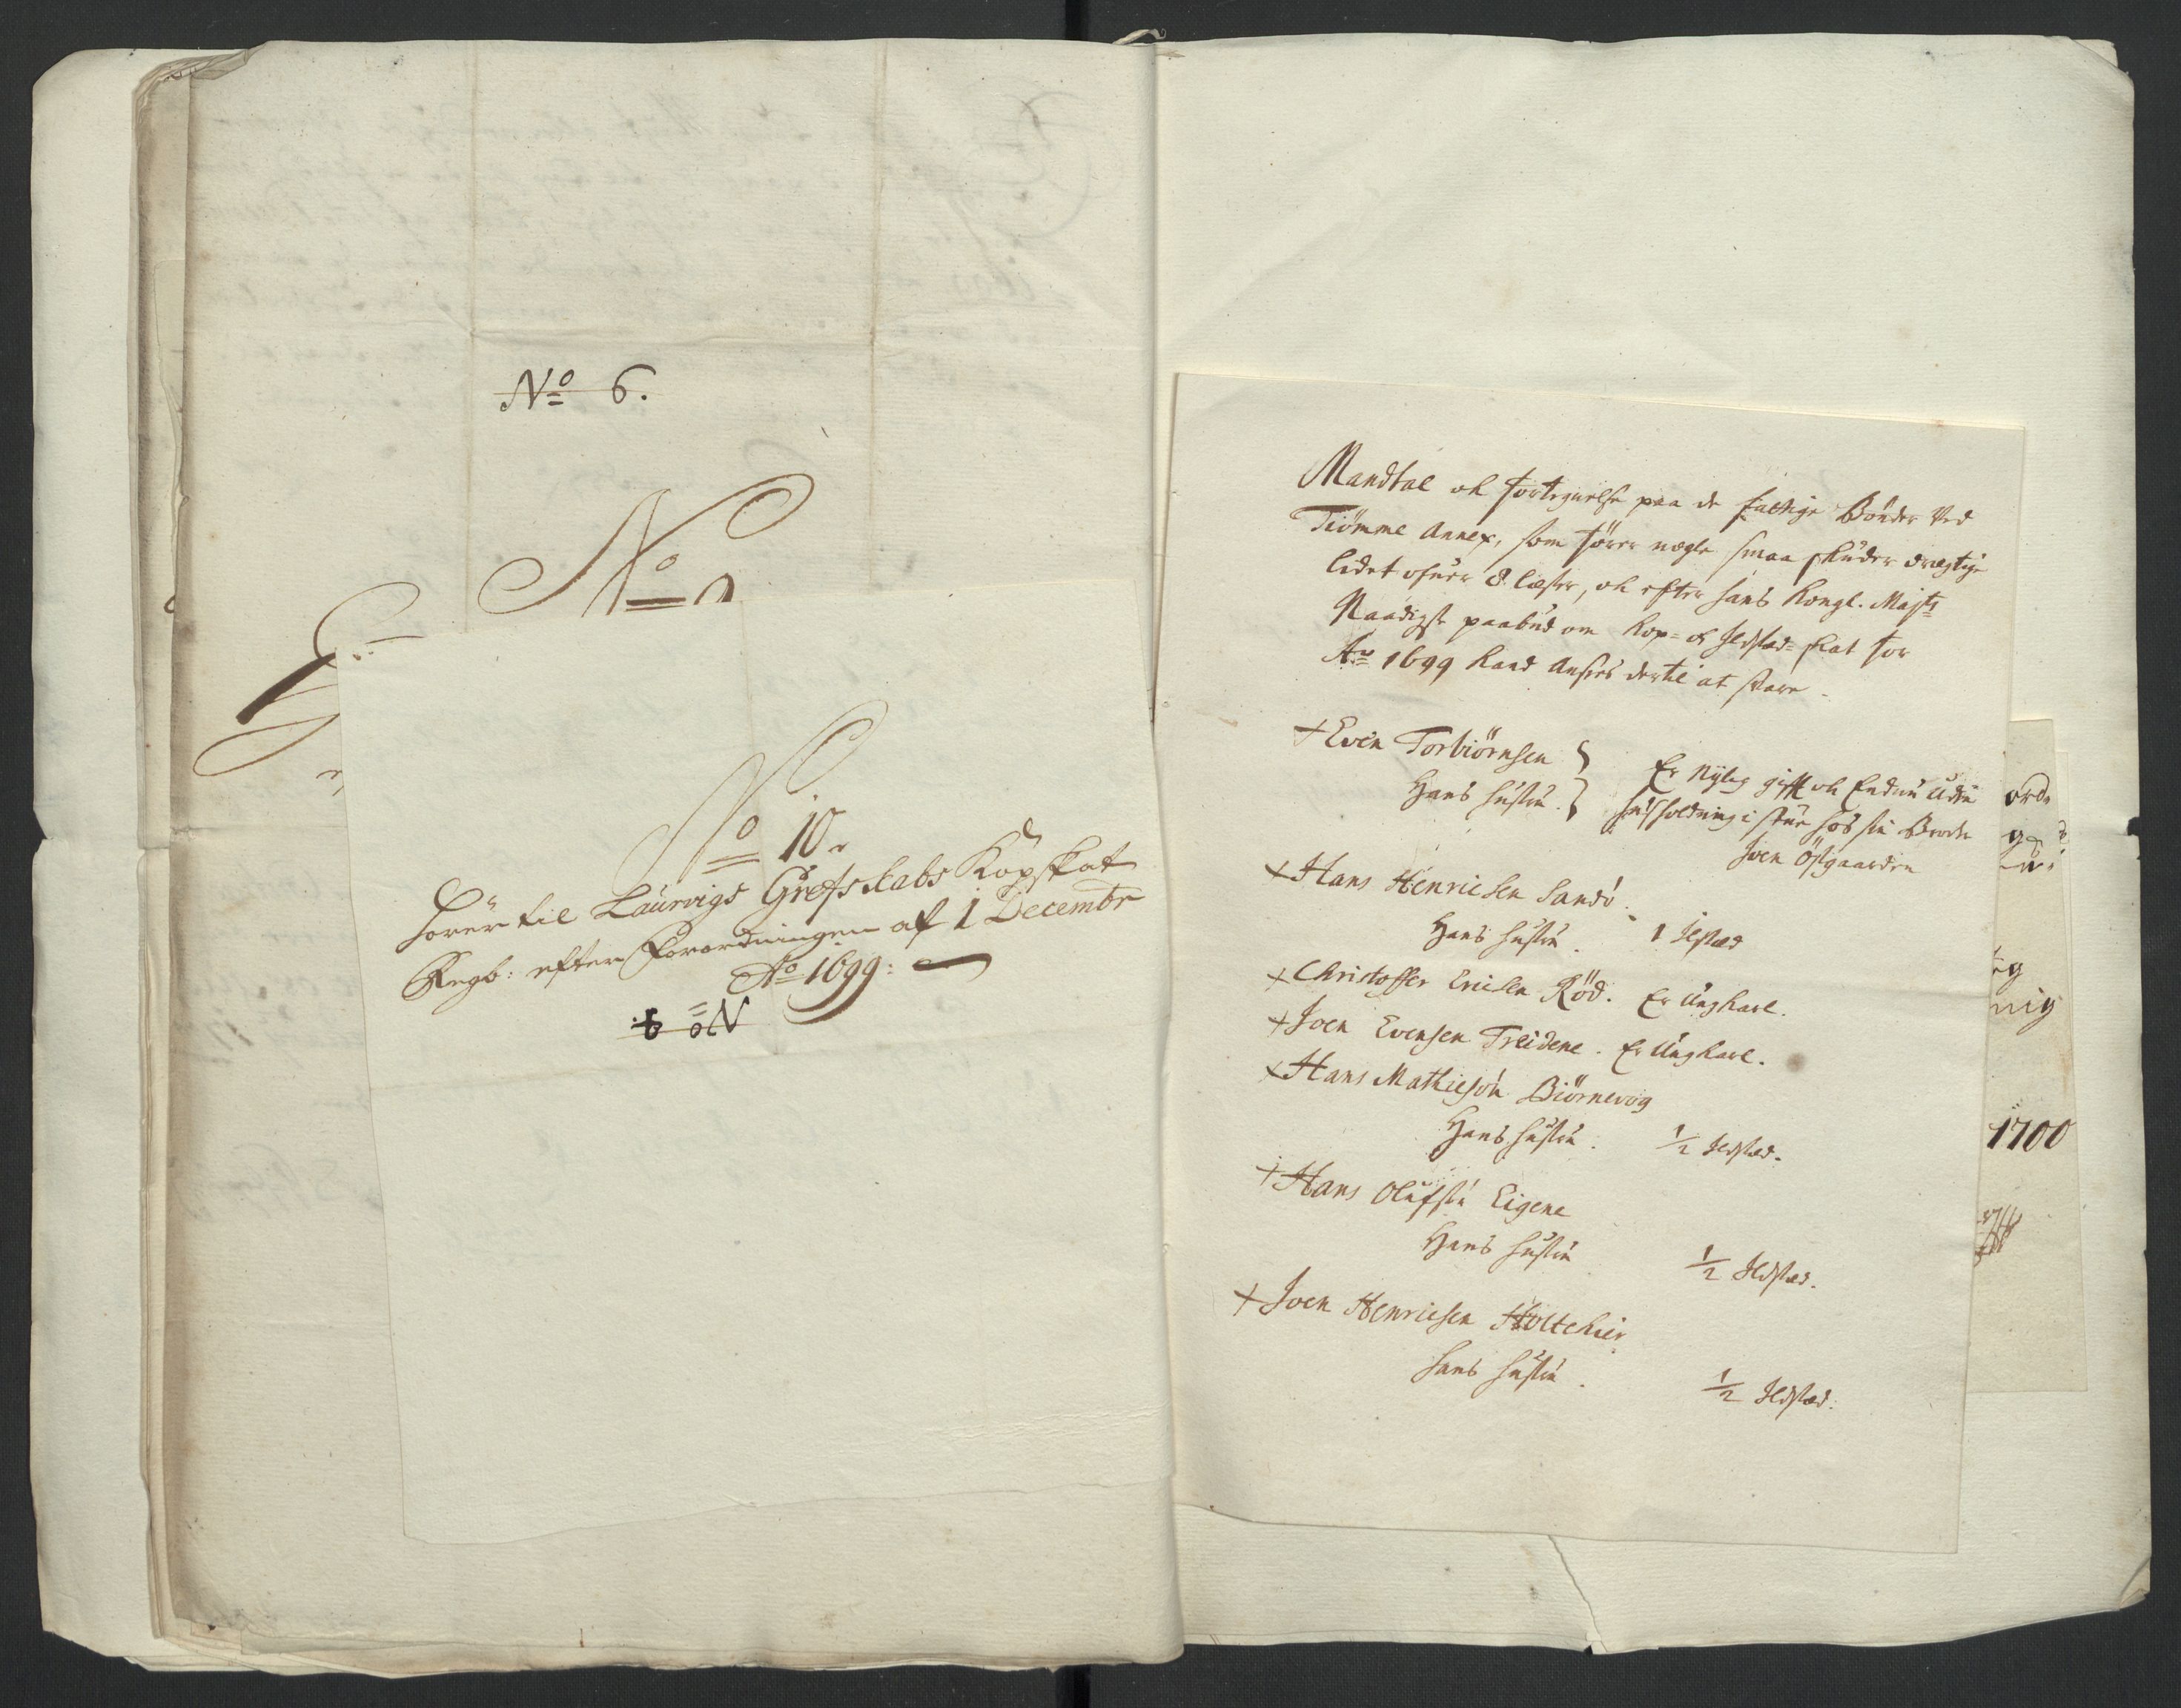 No 6.
No
No 10.
Hörer til Laurvigs Grefskabs Kopskat
Regb: efter Forordningen af 1 Decembr
Ao 1699:
No
Mandtal ok fortegnelse paa de fattige Bönder ved
Tiömme Annex, som förer nogle smaa skuder drægtige
lidet ofuer 8 læster, ok efter hans Kongl. Majts
Naadigste paabud om Kop= ok Ildsted= skat for
Ao 1699 kand ansees dertil at svare.
+ Even Torbiörnsen
Hans hustru.
Er nylig gift ok endnu uden
husholdning i stue hos sin Broder
Iven Östgaarden
+ Hans Henricsen Sandö.
Hans hustru. 1 Ilsted
+ Christoffer Ericsen Röd. Er Ungkarl.
+ Joen Evensen Treidene. Er Ungkarl.
+ Hans Mathiesön Biörnevog
Hans hustru. 1/2 Ildsted.
+ Hans Olufsen Eigene
Hans hustru 1/2 Ildsted.
+ Joen Henricsen Holtekier
hans hustru. 1/2 Ildsted.
orde
nig
1700